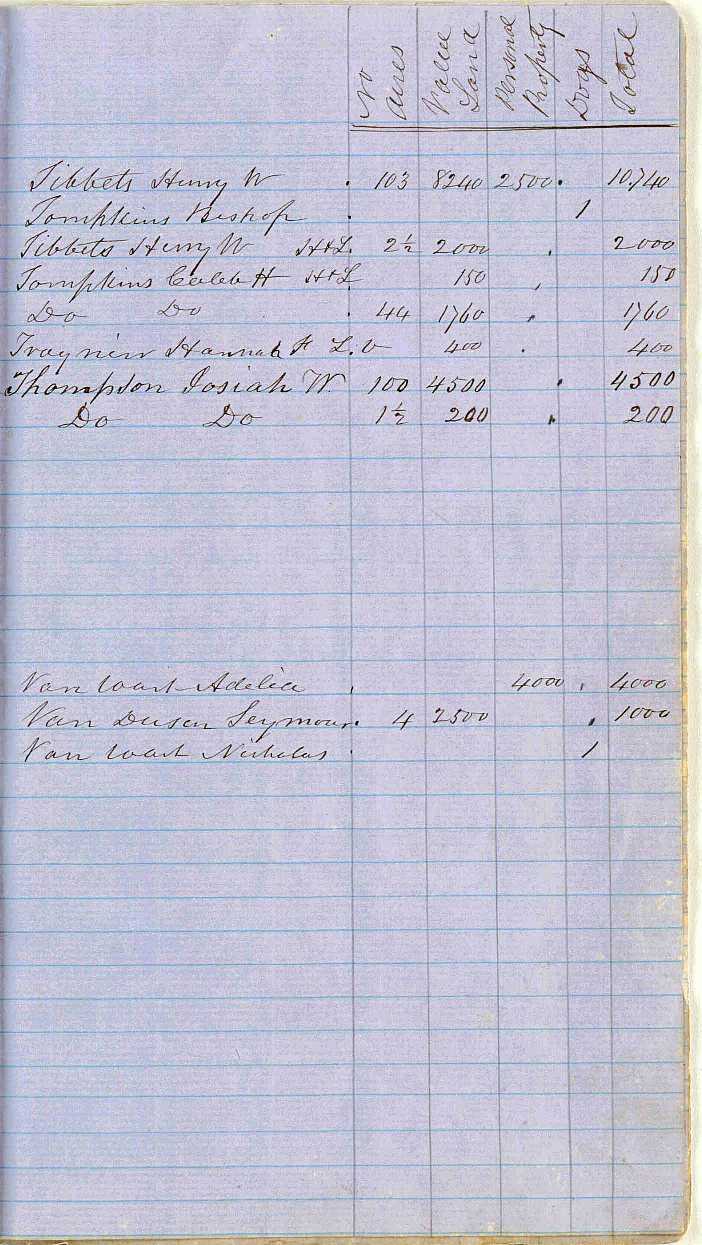 No Acres Value Land Personal Property Dogs Total
Tibbets Henry W 103 8240 2500 10,740
Tompkins Bishop 1
Tibbets Henry W H&L 2½ 2000 2000
Tompkins Caleb H H&L 150 150
Do Do 44 1760 1760
Hannah F L. 400 400
Thompson Josiah W 100 4500 4500
Do Do 1½ 200 200
Van Wart Adelia 4000 4000
Van Deusen Seymour 4 2500 1000
Van Wart Nicholas 1